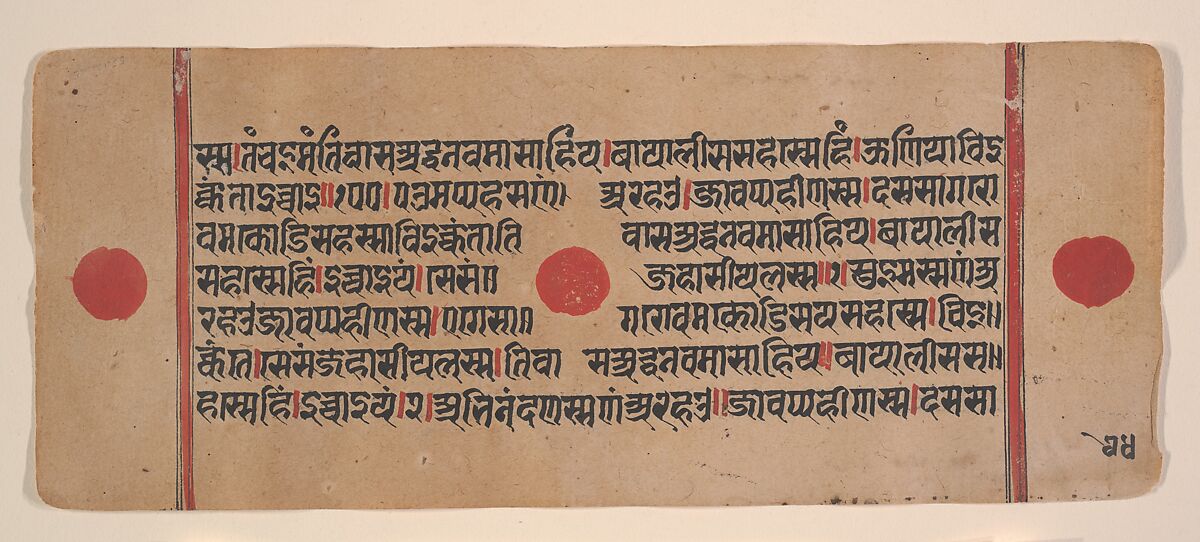 स्स।तंचइमंतिवासअद्धनवमासाहिय।बायालीससहास्सहिं।ऊणियाविइ
क्कंताइच्चाइ॥ ।पउमप्पहसणं। अरहउ।जावप्पहीणस्स।दससागरो
वमकोडिसहस्साविइक्कंताति वासअद्धनवमासाहिय।बायालीस
सहास्सहिं।इच्चाइयं।सेसं॥ जहासीयलस्स॥१।सुइमस्सणंअ
रहउजावप्पहीणस्स।एगेसा॥ गरोवमकोडिसयसहास्स।विइ॥
क्कंते।सेसंजहासीयलस्स।तिवा सअद्धनवमासाहिय॥बायालीसस॥
हास्सहिं।इच्चाइयं।२।अभिनंदणस्सणंअरहउ॥जावप्पहीणस्स।दससा